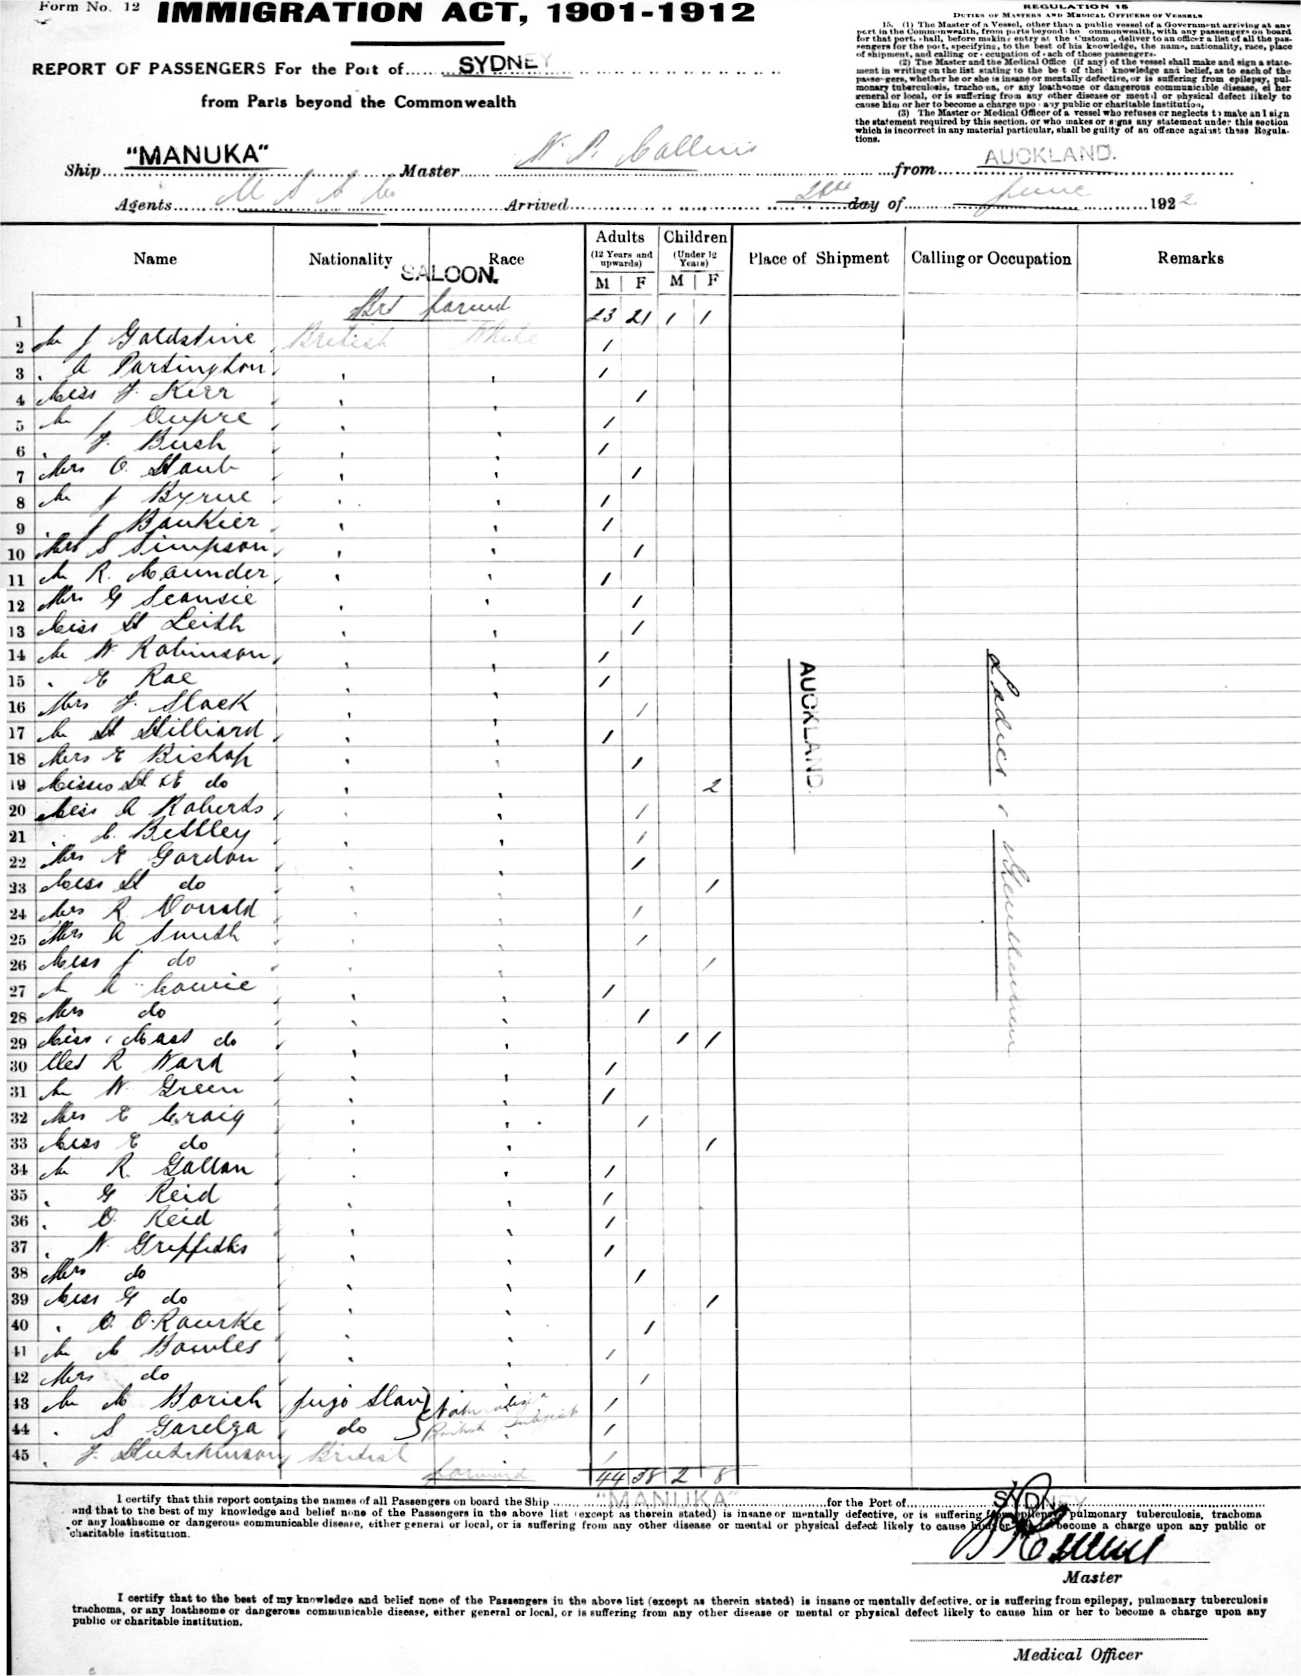 Form No. 12
IMMIGRATION ACT, 1901-1912
REPORT OF PASSENGERS For the Port of SYDNEY
from Parts beyond the Commonwealth
REGULATION 15
DUTIES OF MASTERS AND MEDICAL OFFICERS OF VESSELS
15. (1) The Master of a Vessel, other than a public vessel of a Government arriving at any
port in the Commonwealth, from parts beyond the Commonwealth, with any passengers on board
for that port, shall, before making entry at the Customs, deliver to an officer a list of all the pas-
sengers for the port, specifying, to the best of his knowledge, the name, nationality, race, place
of shipment, and calling or occupation of each of those passengers.
(2) The Master and the Medical Office (if any) of the vessel shall make and sign a state-
ment in writing on the list stating to the best of their knowledge and belief, as to each of the
passengers, whether he or she is insane or mentally defective, or is suffering from epilepsy, pul-
monary tuberculosis, trachoma, or any loathsome or dangerous communicable disease, either
general or local, or is suffering from any other disease or mental or physical defect likely to
cause him or her to become a charge upon any public or charitable institution,
(3) The Master or Medical Officer of a vessel who refuses or neglects to make and sign
the statement required by this section, or who makes or signs any statement under this section
which is incorrect in any material particular, shall be guilty of an offence against these Regula-
tions.
Ship "MANUKA" Master Collins from AUCKLAND.
Agents U S S Co Arrived 26th day of June 1922
Name Nationality Race Adults (12 Years and upwards) M F Children (Under 12 Years) M F Place of Shipment Calling or Occupation Remarks
SALOON.
1 Brt forward 23 21 1 1
2 Mr J Goldstine British White 1
3 " A Partington " " 1
4 Miss F Kerr " " 1
5 Mr J Dupre " " 1
6 " F Bush " " 1
7 Mrs O Staub " " 1
8 Mr J Byrne " " 1
9 " J Baukier " " 1
10 Mrs S Simpson " " 1
11 Mr R. Maunder " " 1
12 Mrs G " " 1
13 Miss H Leith " " 1
14 Mr W Robinson " " 1
15 " E Rae " " 1
16 Mrs F Slack " " 1
17 Mr H Hilliard " " 1
18 Mrs E Bishop " " 1
19 Misses H & E do " " 2
20 Miss A Roberts " " 1
21 " C. Bettley " " 1
22 Mrs E Gordon " " 1
23 Miss H do " " 1
24 Mrs R Donald " " 1
25 Mrs A Smith " " 1
26 Miss J do " " 1
27 Mr A Cowie " " 1
28 Mrs do " " 1
29 Miss & Mast do " " 1 1
30 R Ward " " 1
31 Mr W Green " " 1
32 Mrs E Craig " " 1
33 Miss E do " " 1
34 Mr R. Gallan " " 1
35 " G Reid " " 1
36 " D. Reid " " 1
37 " W. Griffiths " " 1
38 Mrs do " " 1
39 Miss G do " " 1
40 " O'Rourke " " 1
41 Mr Bowles " " 1
42 Mrs do " " 1
43 Mr M Borich Jugo Slav 1
44 " S Garelza do British subject 1
45 " F. Hutchinson British 1
forward 44 38 2 8
AUCKLAND.
Ladies & Gentlemen
I certify that this report contains the names of all Passengers on board the Ship "MANUKA" for the Port of SYDNEY
and that to the best of my knowledge and belief none of the Passengers in the above list (except as therein stated) is insane or mentally defective, or is suffering from epilepsy, pulmonary tuberculosis, trachoma
or any loathsome or dangerous communicable disease, either general or local, or is suffering from any other disease or mental or physical defect likely to cause him or her to become a charge upon any public or
charitable institution.
Master
I certify that to the best of my knowledge and belief none of the Passengers in the above list (except as therein stated) is insane or mentally defective, or is suffering from epilepsy, pulmonary tuberculosis
trachoma, or any loathsome or dangerous communicable disease, either general or local, or is suffering from any other disease or mental or physical defect likely to cause him or her to become a charge upon any
public or charitable institution.
Medical Officer